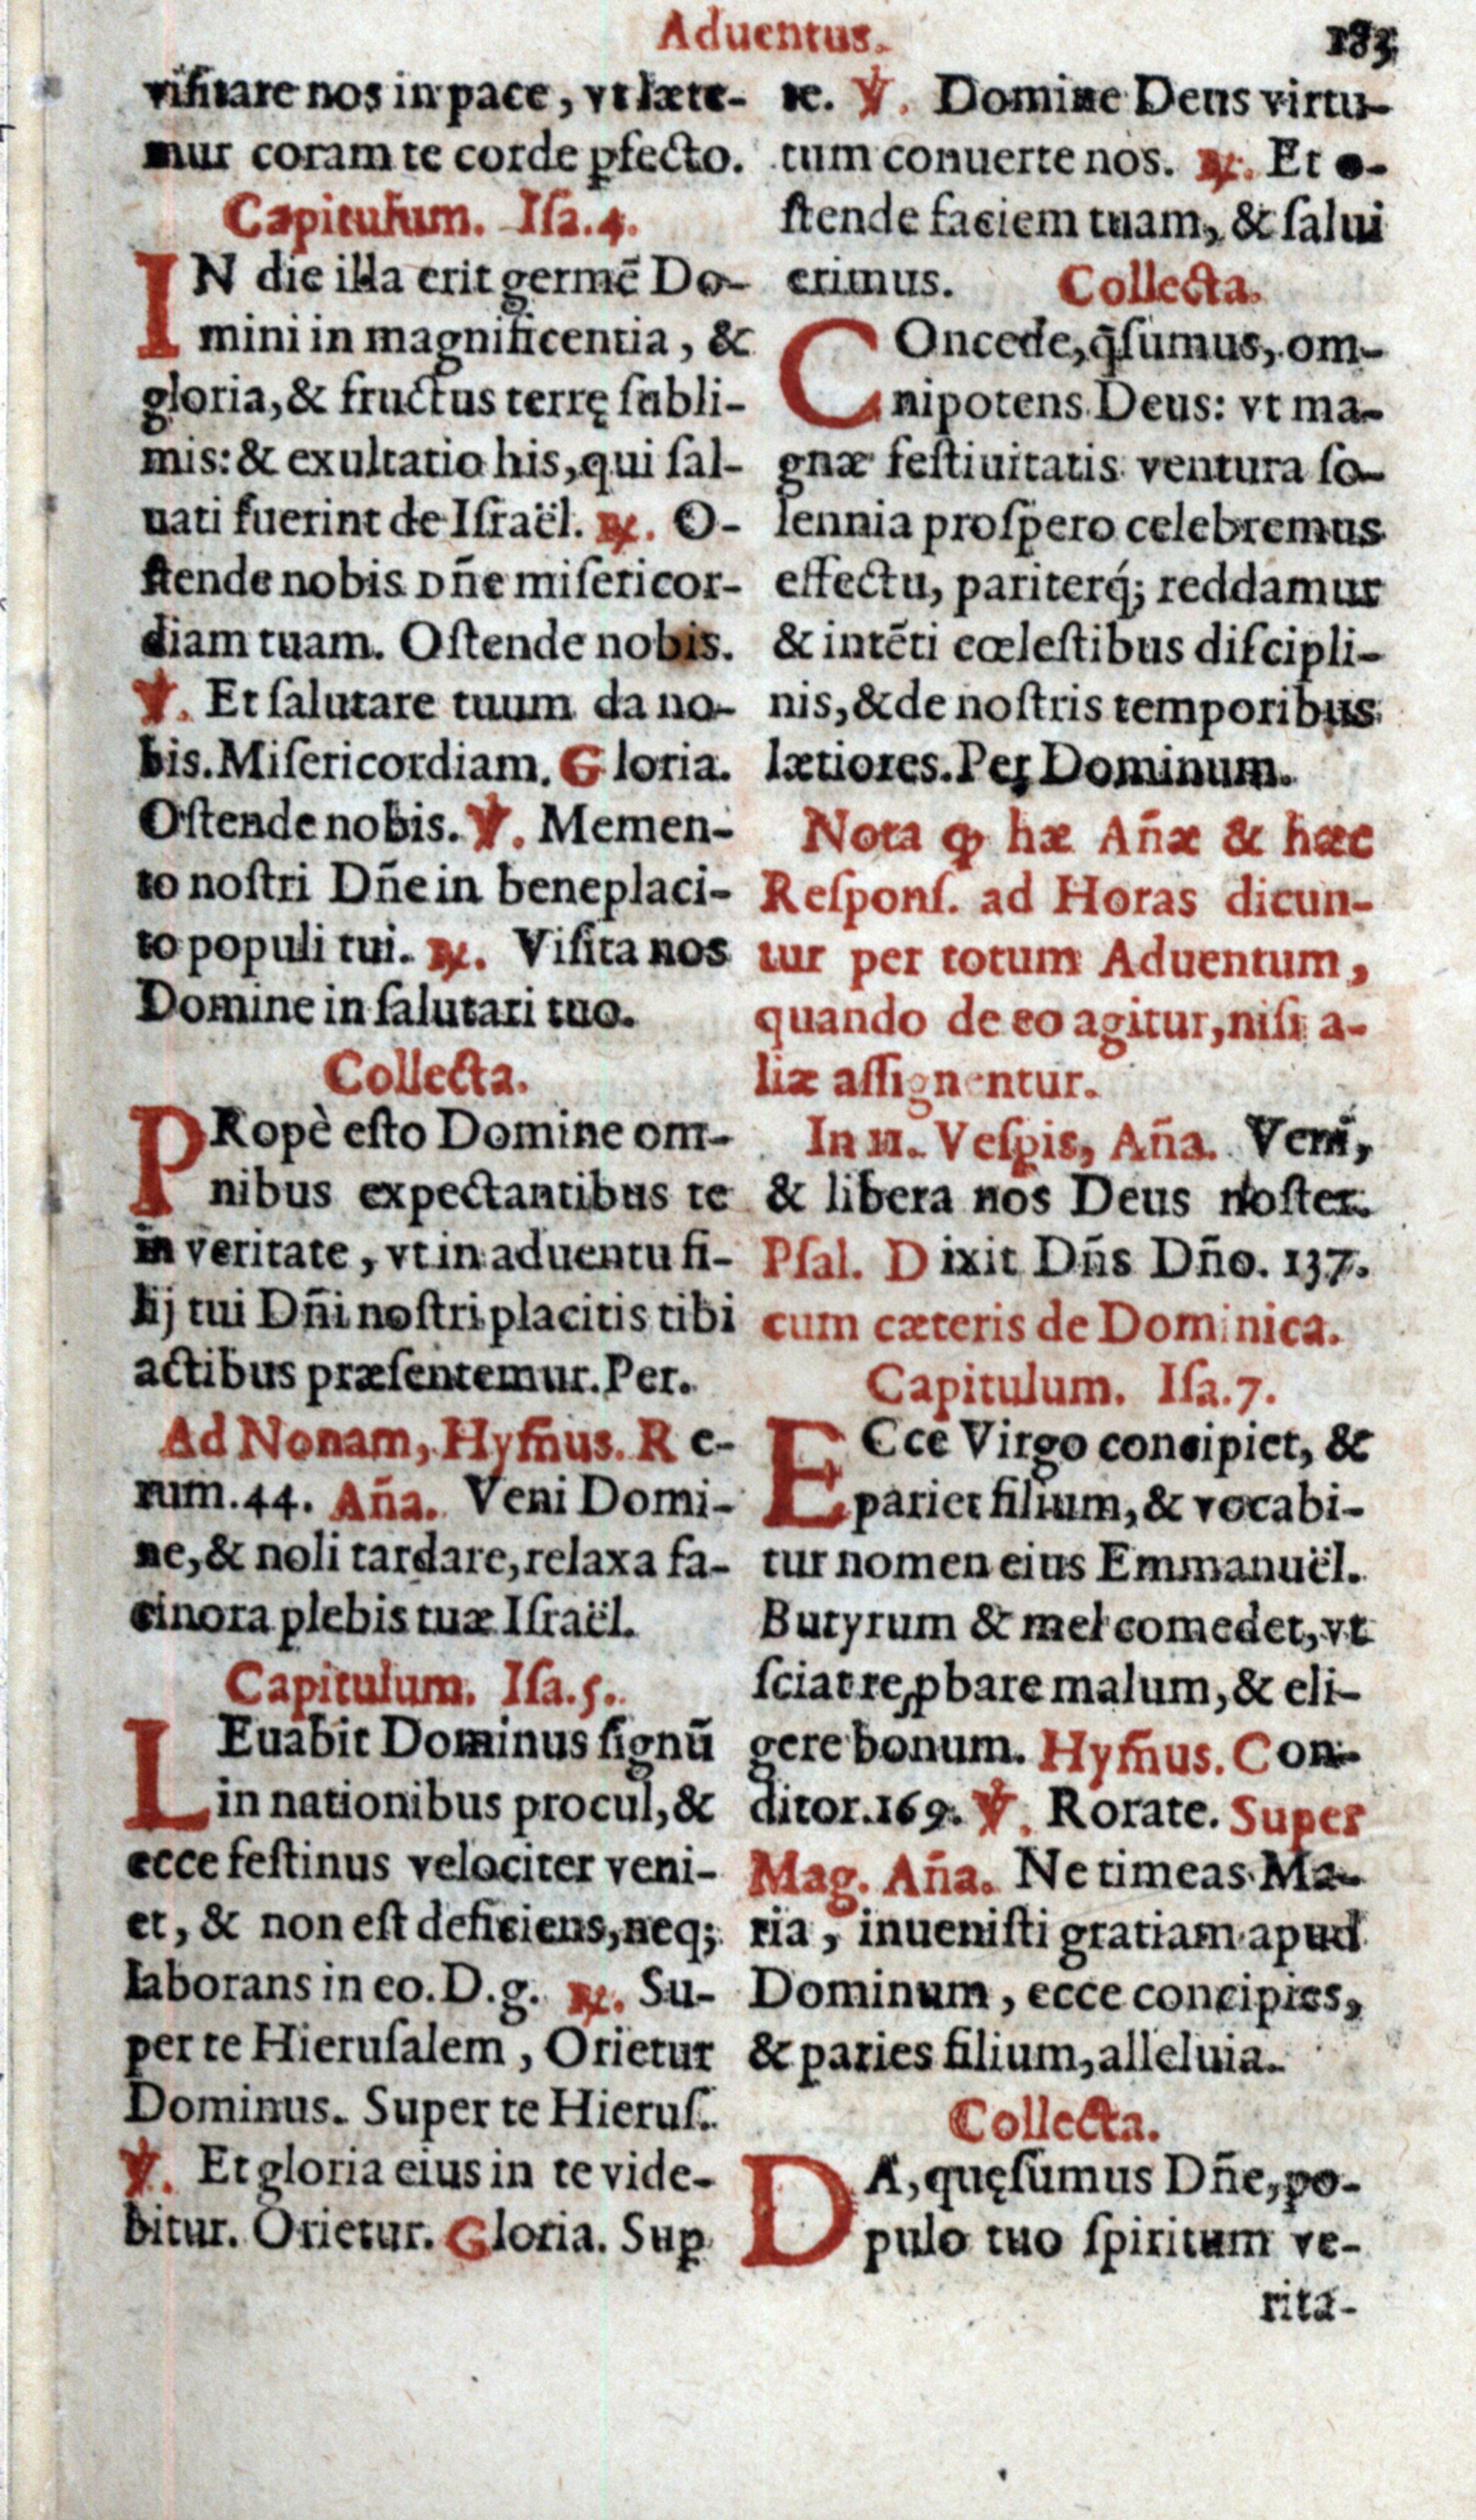 Aduentus.
183
viſitare nos in pace, vt læte-
mur coram te corde ꝑfecto.
Capitulum. Iſa.4.
IN die illa erit germẽ Do-
mini in magnificentia, &
gloria, & fructus terrę ſubli-
mis: & exultatio his, qui ſal-
uati fuerint de Iſraël. ℟. O-
ſtende nobis Dñe miſericor-
diam tuam. Oſtende nobis.
℣. Et ſalutare tuum da no-
bis. Miſericordiam. Gloria.
Oſtende nobis. ℣. Memen-
to noſtri Dñe in beneplaci-
to populi tui. ℟. Viſita nos
Domine in ſalutari tuo.
Collecta.
PRopè eſto Domine om-
nibus expectantibus te
in veritate, vt in aduentu fi-
lij tui Dñi noſtri placitis tibi
actibus præſentemur. Per.
Ad Nonam, Hym̃us. Re-
rum. 44. Aña. Veni Domi-
ne, & noli tardare, relaxa fa-
cinora plebis tuæ Iſraël.
Capitulum. Iſa.5.
LEuabit Dominus ſignũ
in nationibus procul, &
ecce feſtinus velociter veni-
et, & non eſt deficiens, neq;
laborans in eo. D.g. ℟. Su-
per te Hieruſalem, Orietur
Dominus. Super te Hieruſ.
℣. Et gloria eius in te vide-
bitur. Orietur. Gloria. Suꝑ
te. ℣. Domine Deus virtu-
tum conuerte nos. ℟. Et o-
ſtende faciem tuam, & ſalui
erimus. Collecta.
COncede, q̃ſumus, om-
nipotens Deus: vt ma-
gnæ feſtiuitatis ventura ſo-
lennia proſpero celebremus
effectu, pariterq́; reddamur
& intẽti cœleſtibus diſcipli-
nis, & de noſtris temporibus
lætiores. Per Dominum.
Nota ꝙ hæ Añæ & hæc
Reſponſ. ad Horas dicun-
tur per totum Aduentum,
quando de eo agitur, niſi a-
liæ aſſignentur.
In II. Veſꝑis, Aña. Veni,
& libera nos Deus noſter.
Pſal. Dixit Dñs Dño. 137.
cum cæteris de Dominica.
Capitulum. Iſa.7.
ECce Virgo concipiet, &
pariet filium, & vocabi-
tur nomen eius Emmanuël.
Butyrum & mel comedet, vt
ſciat reꝓbare malum, & eli-
gere bonum. Hym̃us. Con-
ditor. 169. ℣. Rorate. Super
Mag. Aña. Ne timeas Ma-
ria, inueniſti gratiam apud
Dominum, ecce concipies,
& paries filium, alleluia.
Collecta.
DA, quęſumus Dñe, po-
pulo tuo ſpiritum ve-
rita-